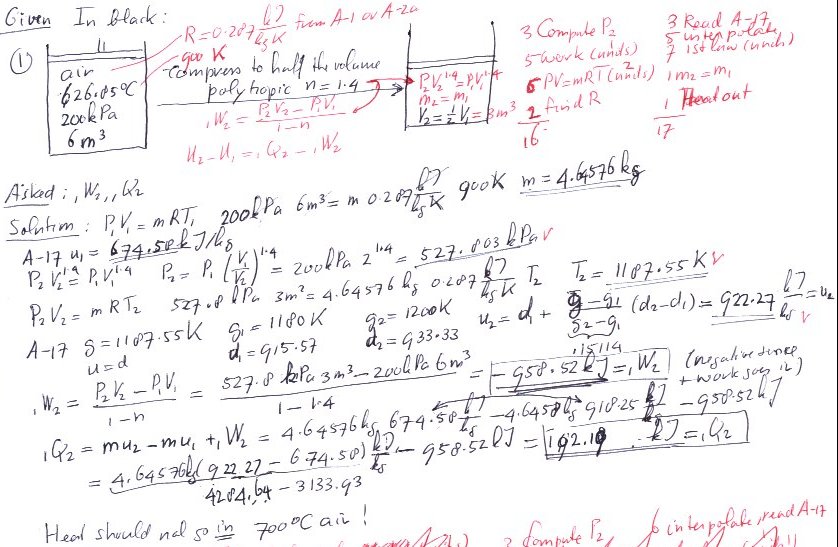 Given In black: R=0.287 kJ/kgK from A-1 or A-2a
900 K
①
air
626.85°C
200kPa
6m³
compress to half the volume
polytropic n=1.4
₁W₂ = (P₂V₂ - P₁V₁)/(1-n)
u₂-u₁ = ₁Q₂ - ₁W₂
P₂V₂^1.4 = P₁V₁^1.4
m₂=m₁
V₂=½V₁=3m³
3 Compute P₂
5 work (units)
6 PV=mRT (units)
2 find R
16
3 Read A-17
5 interpolate
7 1st law (units)
1 m₂=m₁
1 Heat out
17
Asked: ₁W₂, ₁Q₂
Solution: P₁V₁=mRT₁ 200kPa 6m³=m 0.287 kJ/kgK 900K m=4.64576kg
A-17 u₁=674.58 kJ/kg
P₂V₂^1.4=P₁V₁^1.4 P₂=P₁(V₁/V₂)^1.4=200kPa 2^1.4=527.803kPa ✓
P₂V₂=mRT₂ 527.8kPa 3m³=4.64576kg 0.287 kJ/kgK T₂ T₂=1187.55K ✓
A-17 g=1187.55K g₁=1180K g₂=1200K u₂=d₁+ (g-g₁)/(g₂-g₁) (d₂-d₁)=922.27 kJ/kg=u₂ ✓
u=d d₁=915.57 d₂=933.33 .15114
₁W₂=(P₂V₂-P₁V₁)/(1-n)=(527.8 kPa 3m³-200kPa 6m³)/(1-1.4)=-958.52kJ=₁W₂ (negative since
work goes in)
₁Q₂=mu₂-mu₁+₁W₂=4.64576kg 674.58 kJ/kg-4.6458kg 918.25 kJ/kg-958.52kJ
=4.64576kg(922.27-674.58) kJ/kg-958.52kJ=192.19 kJ=₁Q₂
4284.64-3133.93
Heat should not go in 700°C air!
3 Compute P₂ 6 interpolate, read A-17